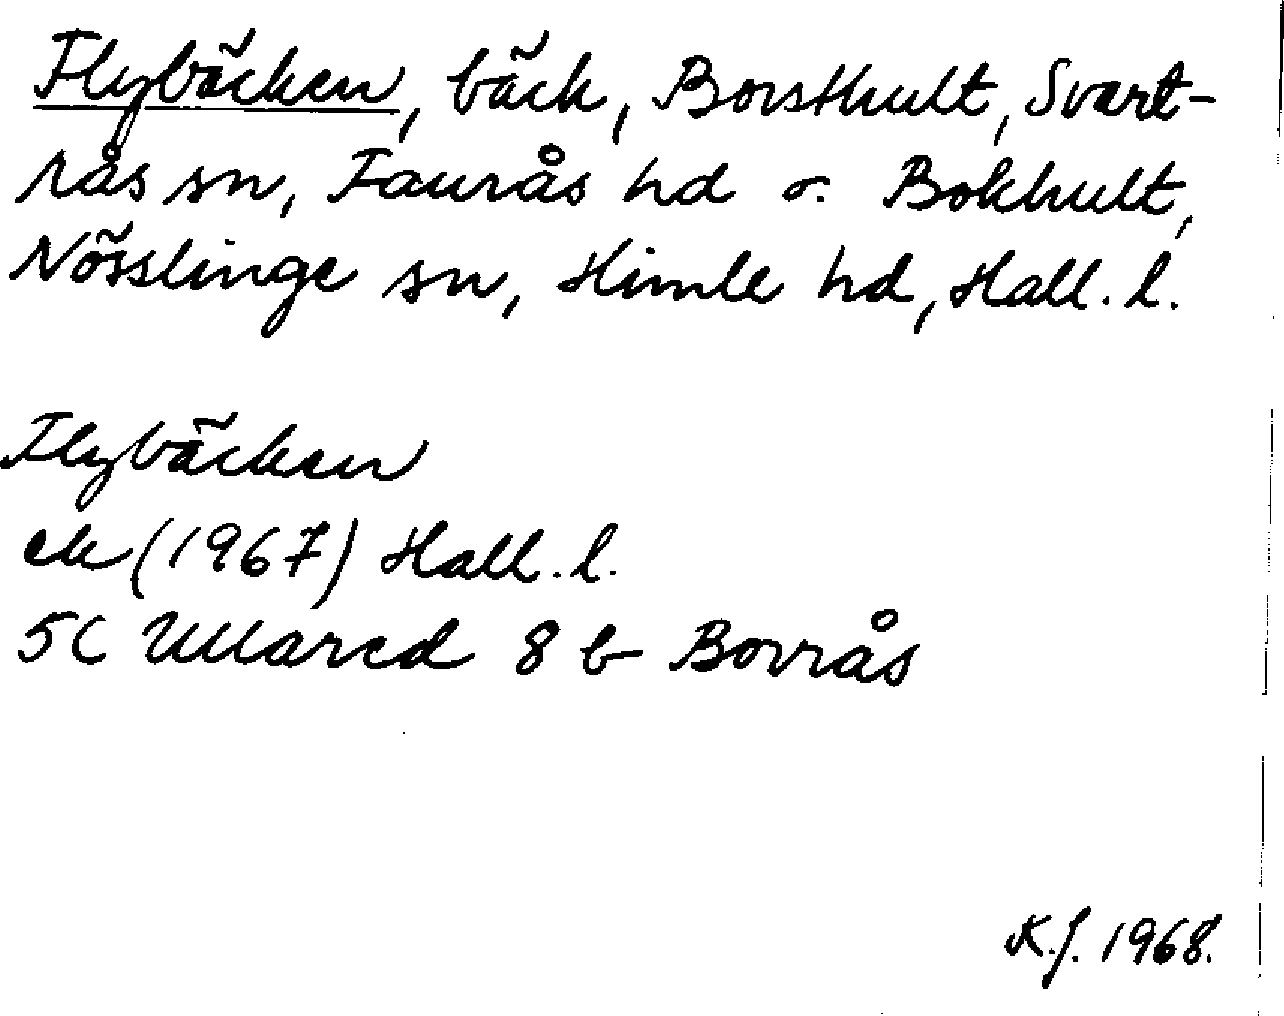 Flybäcken, bäck, Borsthult, Svart-
rås sn, Faurås hd o. Bokhult,
Nösslinge sn, Himle hd, Hall. l.
Flybäcken
ek (1967) Hall. l.
5C Ullared 8 b Borrås
K.J. 1968.